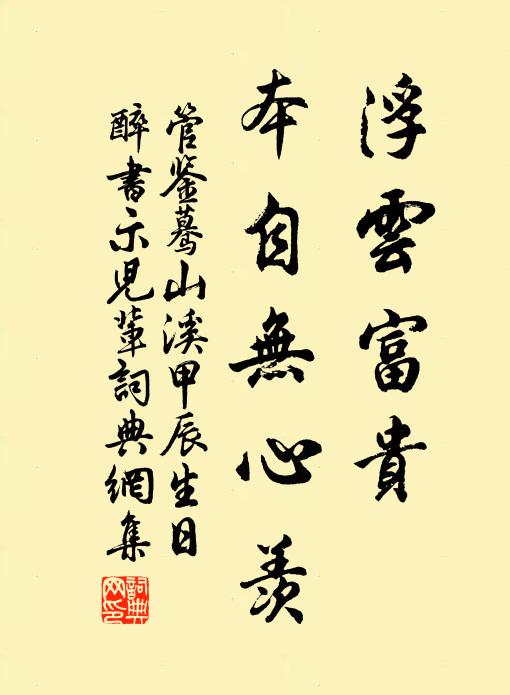 浮雲富貴
本自無心羨
管鉴蓦山溪甲辰生日
醉書示児輩詞典網集
詞典网印